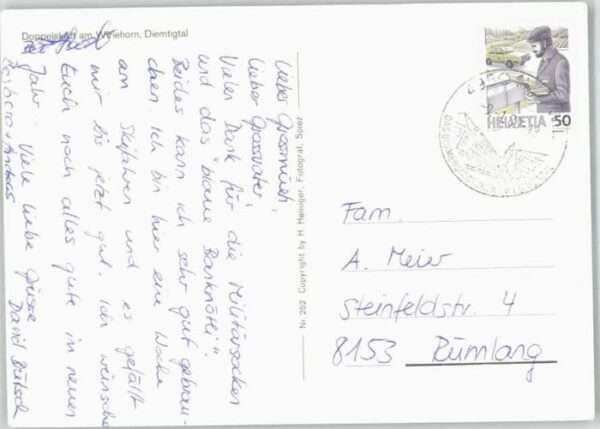 Doppelskilift am Wiriehorn, Diemtigtal
Lieber Grossmueti,
Lieber Grossvater,
Vielen Dank für die Militärsocken
und das "blaue Banknötli".
Beides kann ich sehr gut gebrau-
chen. Ich bin hier eine Woche
am Skifahren und es gefällt
mir bis jetzt gut. Ich wünsche
Euch noch alles gute im neuen
Jahr. Viele liebe Grüsse
David
Nr. 292 Copyright by H. Heiniger, Fotograf, Spiez
HELVETIA 50
Fam.
A. Meier
Steinfeldstr. 4
8153 Rümlang